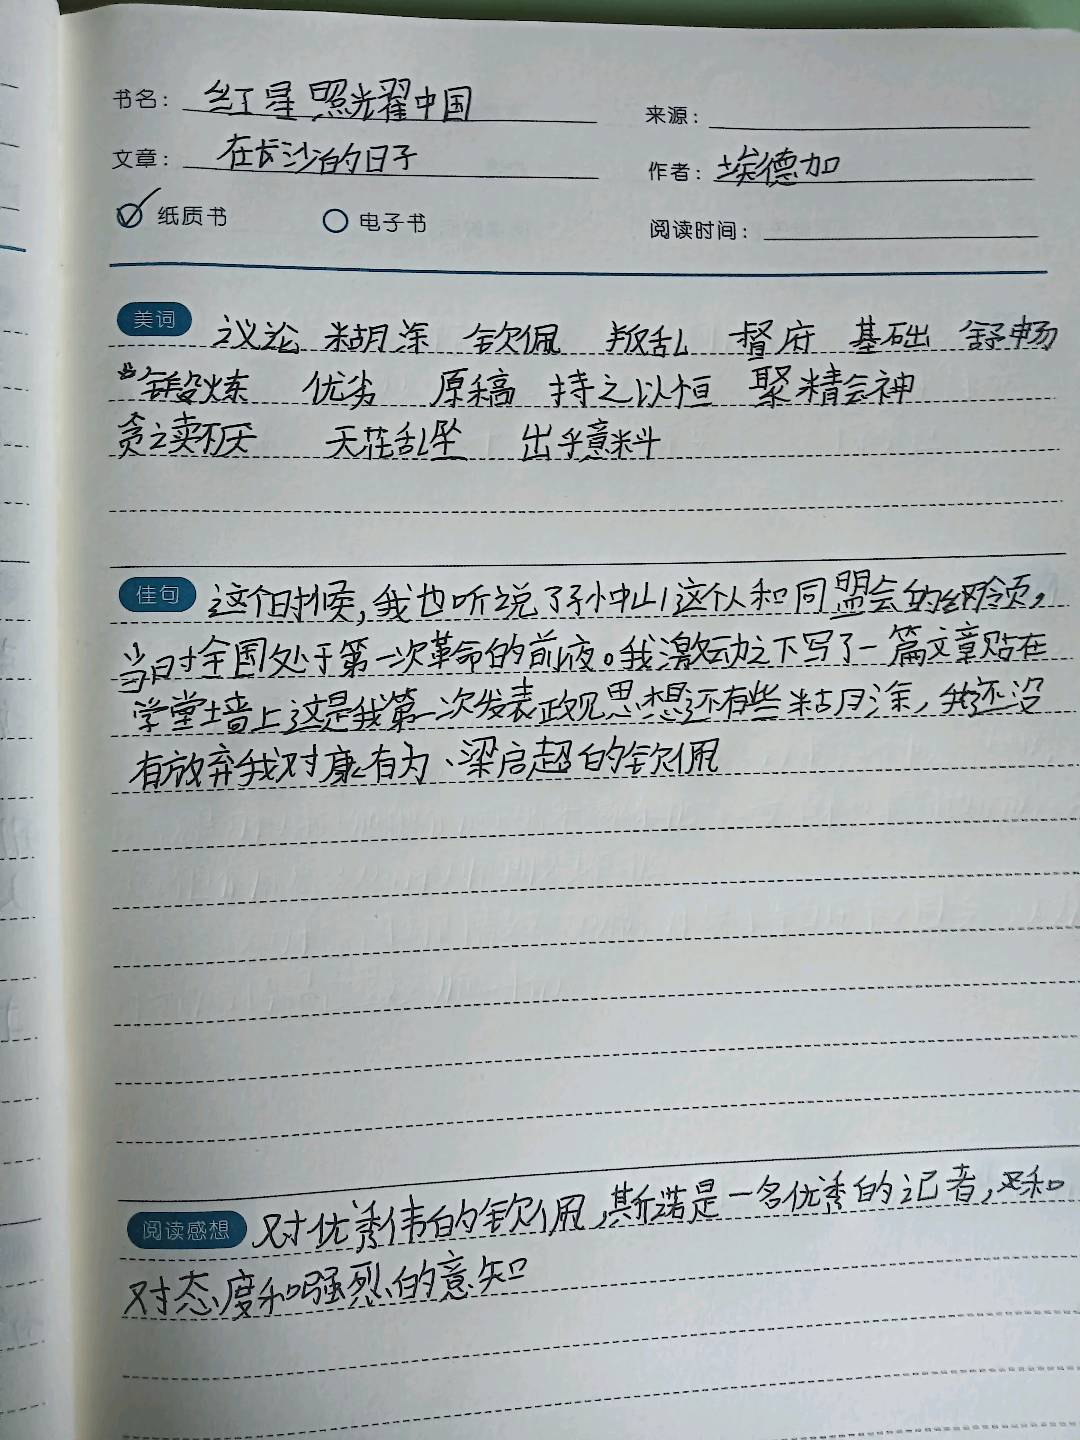 书名： 红星照光耀中国
来源：
文章： 在长沙的日子
作者： 埃德加
纸质书 电子书
阅读时间：
美词 议论 糊涂 钦佩 叛乱 督府 基础 舒畅
锻炼 优劣 原稿 持之以恒 聚精会神
贪读不厌 天花乱坠 出乎意料
佳句 这个时候,我也听说了孙中山这个人和同盟会的纲领,
当时全国处于第一次革命的前夜。我激动之下写了一篇文章贴在
学堂墙上这是我第一次发表政见思想还有些糊涂,我还没
有放弃我对康有为、梁启超的钦佩
阅读感想 对优秀伟的钦佩,斯诺是一名优秀的记者,和
对态度和强烈的意知